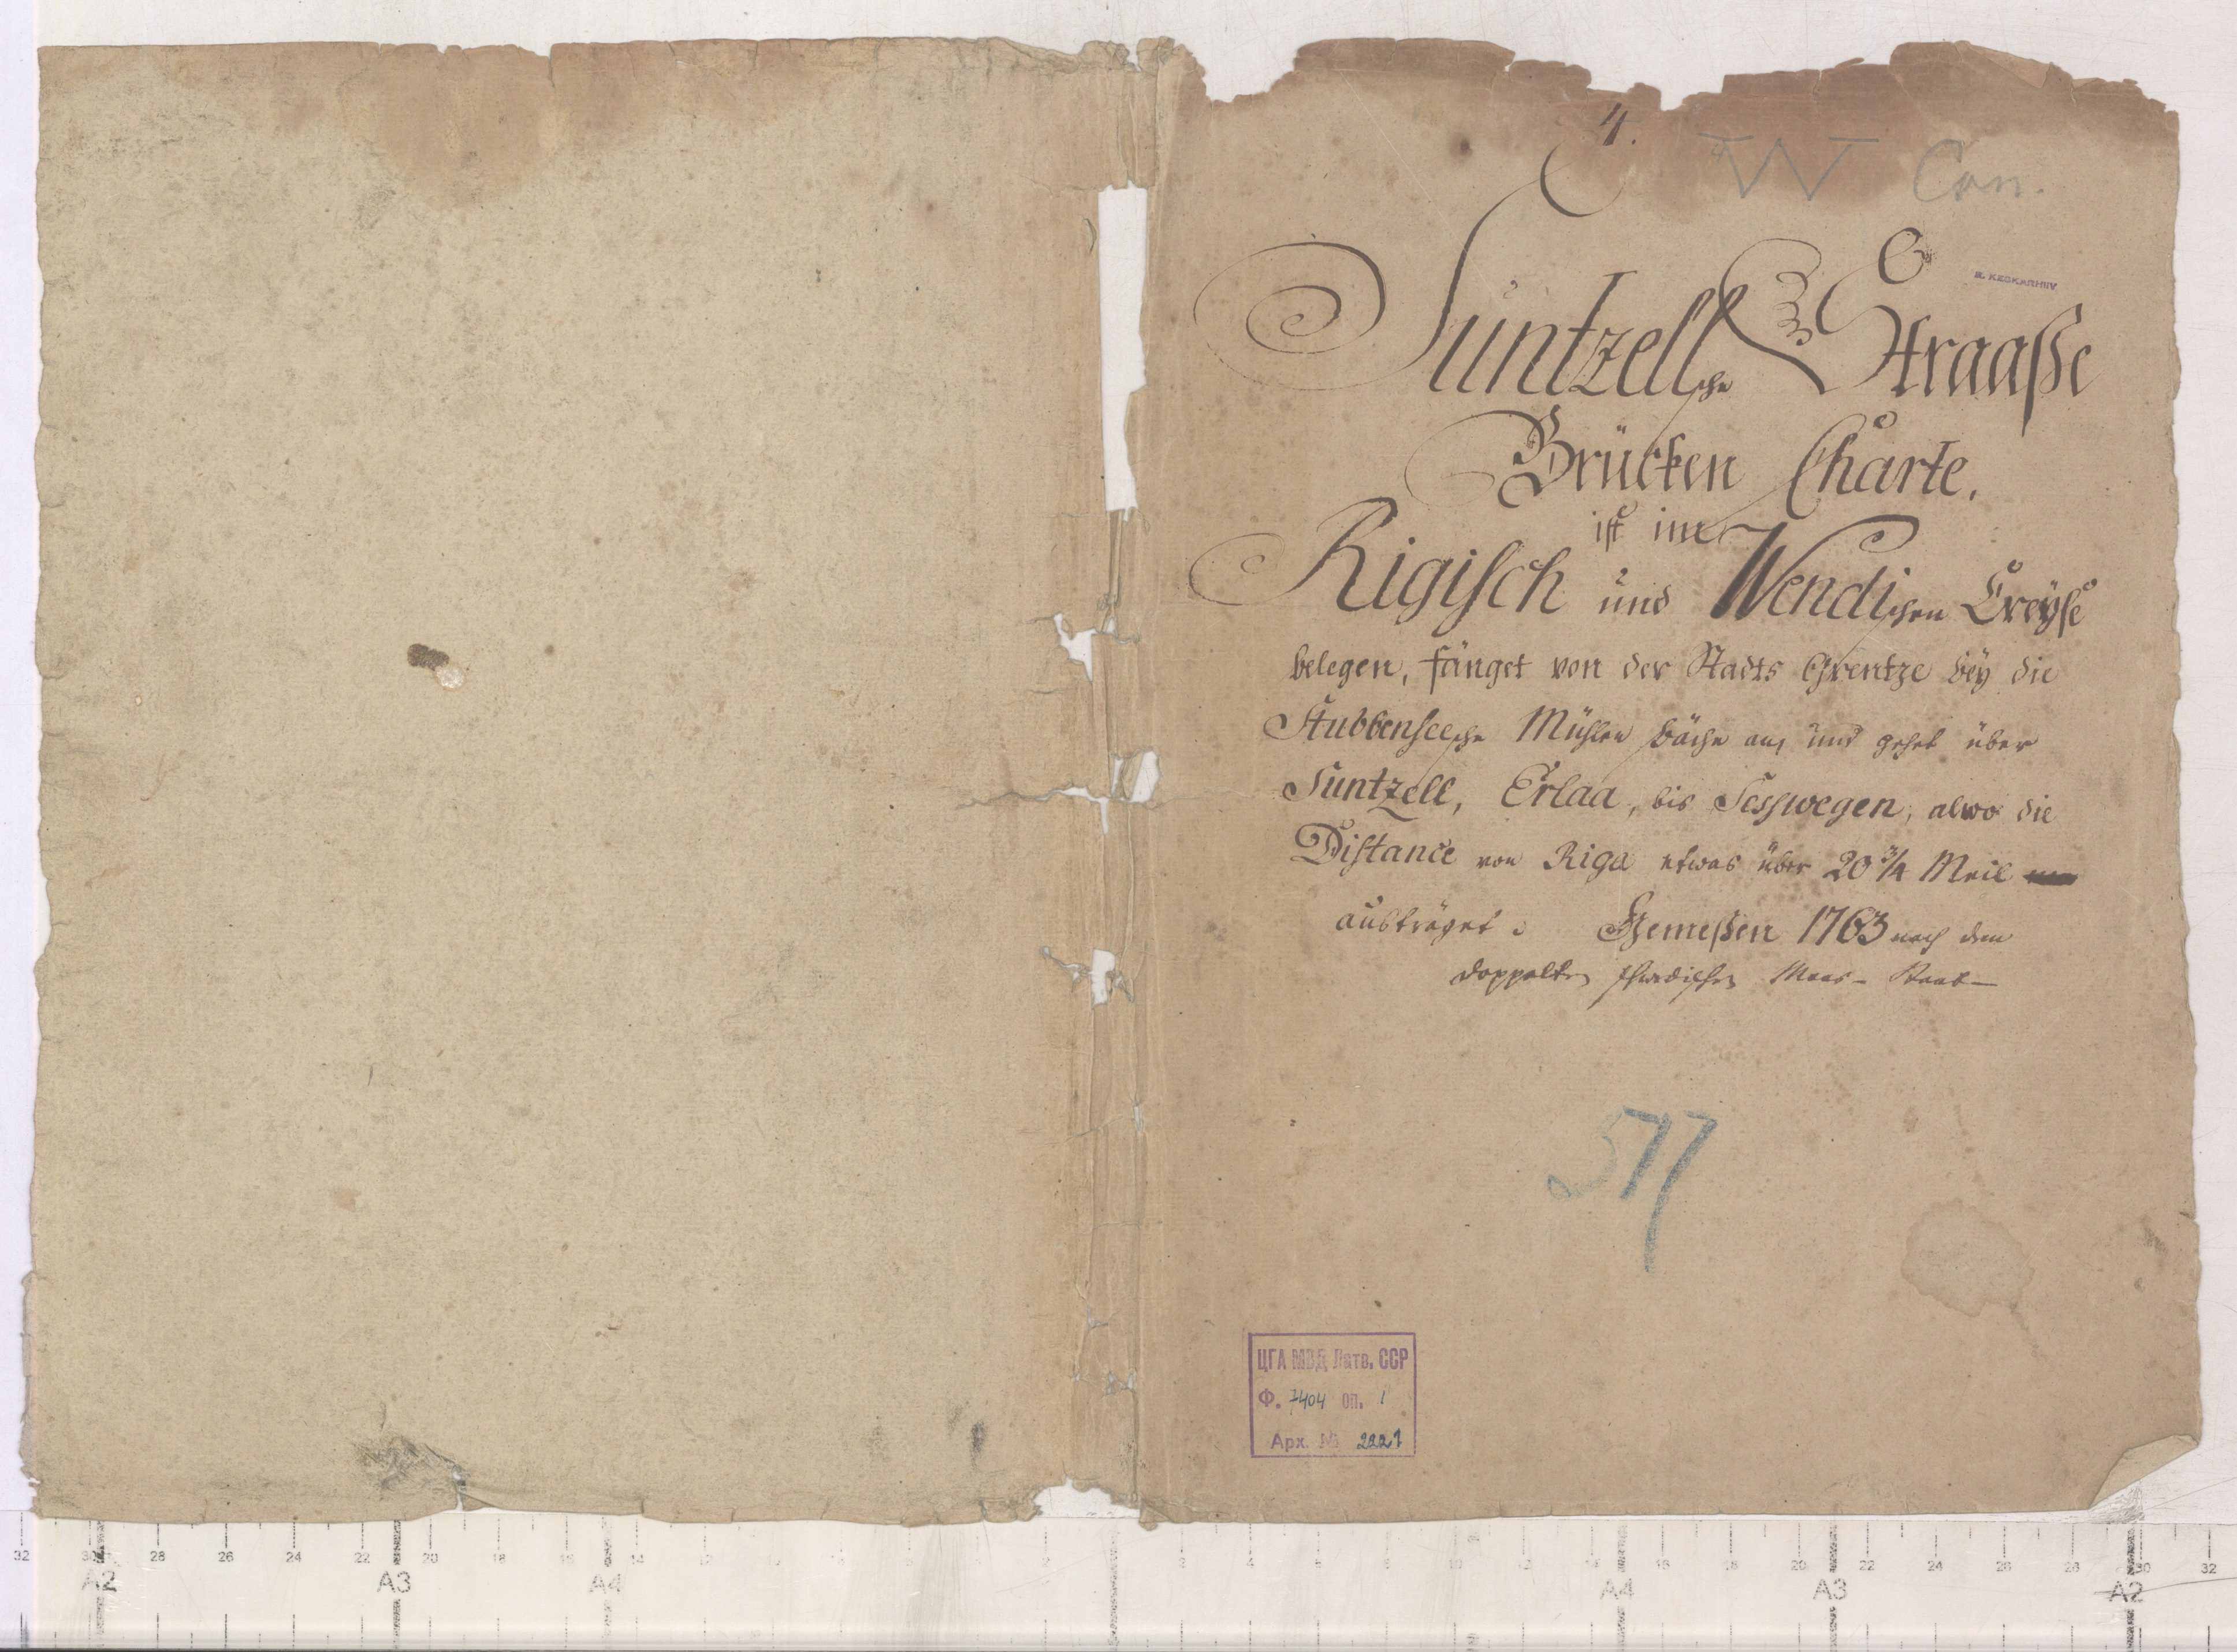 4.
W Con.
KESKARHIIV
Suntzellsche Straaße
Brücken Charte.
ist im
Rigisch und Wendischen Creÿse
belegen, fänget von der Stadts Grentze beÿ die
Stubbenseesche Mühlen bäche an, und gehet über
Suntzell, Erlaa, bis Sesswegen, alwo die
Distance von Riga etwas über 20 3/4 Meil
austräget. Gemeßen 1763 nach dem
doppelten schwedischen Maas-Staab
577
ЦГА МВД Латв. ССР
Ф. 7404 оп. 1
Арх. № 2221
32 30 28 26 24 22 20 18 16 14 2 2 4 6 8 10 12 14 16 18 20 22 24 26 28 30 32
A2 A3 A4 A4 A3 A2